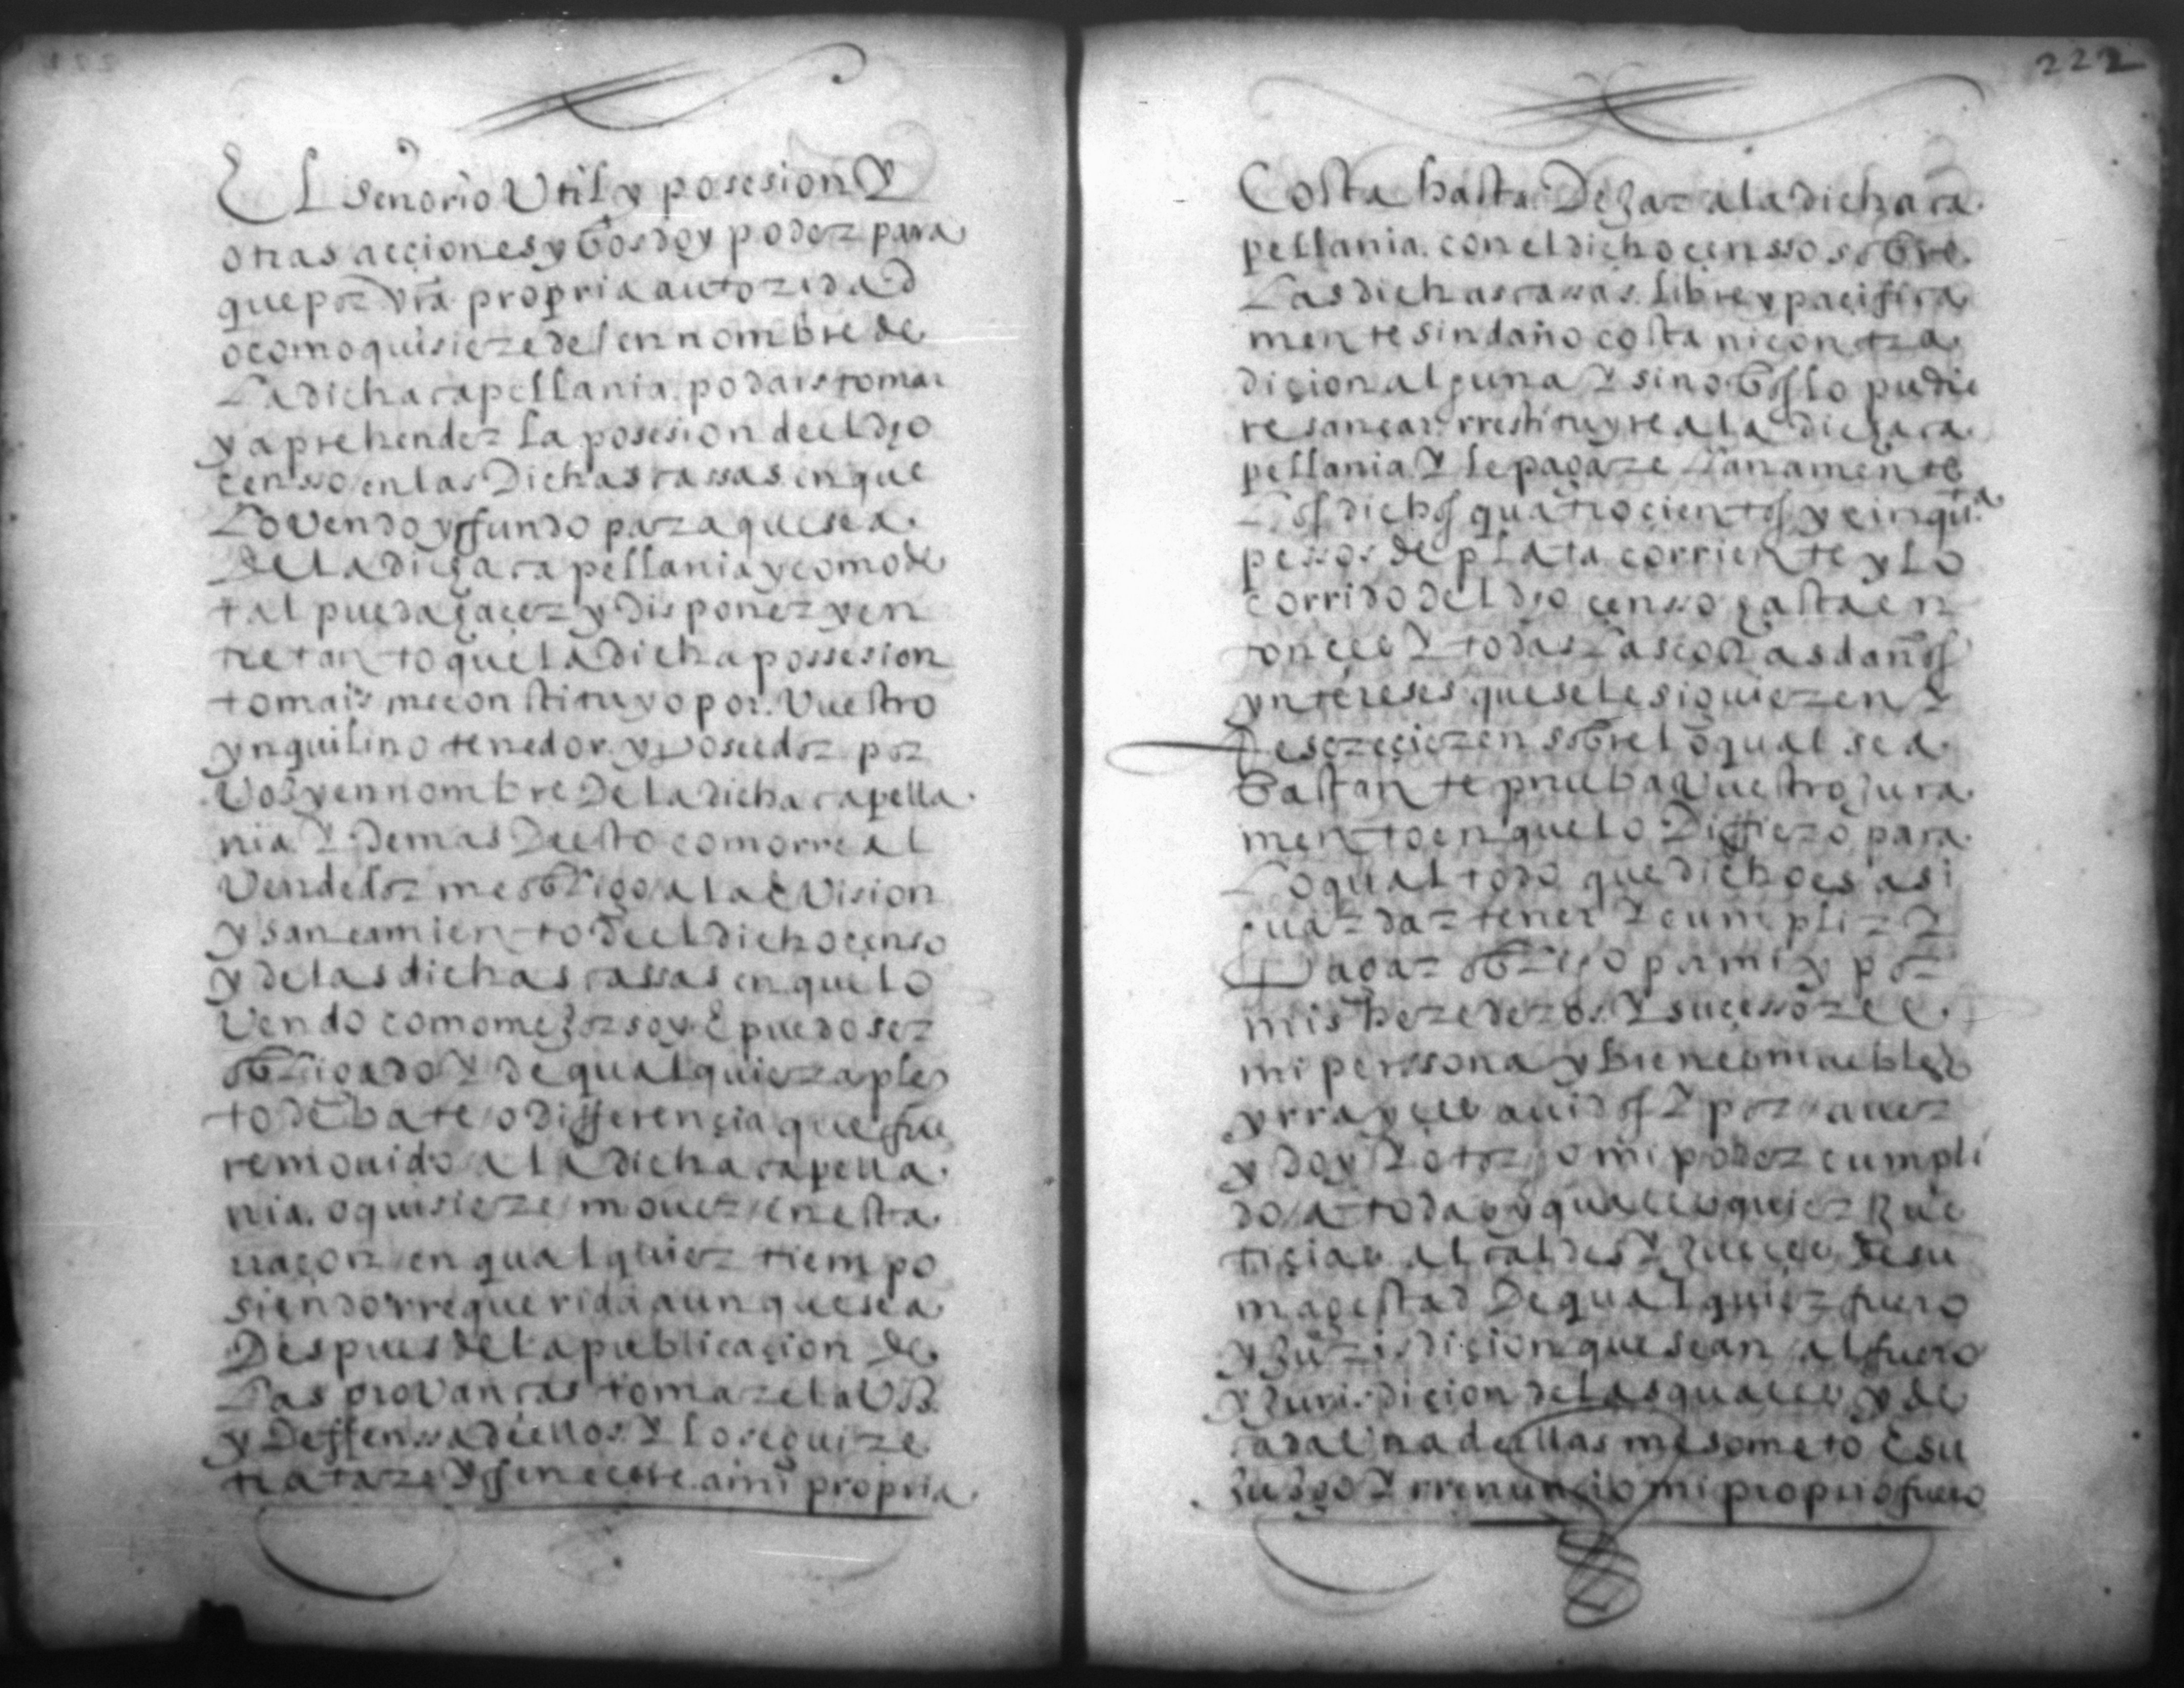 El señorio Util y posesion Y
otras acçiones y bos doy poder para
que por vra propria autoridad
o como quisieredes en nombre de
La dicha capellania podais tomar
y aprehender la posesion deel dho
censso en las Dichas cassas en que
Lo vendo y ffundo para que sea
De la dicha capellania y como de
tal pueda haçer y disponer y en
tre tanto que la dicha possesion
tomais me constituyo por Vuestro
ynquilino tenedor y poseedor por
Vos y en nombre De la dicha capella
nia Y demas Deesto como rreal
Vendedor me obligo a la eVision
y saneamiento deel dicho censo
y de las dichas cassas en que lo
Vendo como mejor soy E puedo ser
obligado Y de qualquiera pley
to debate o differençia que fue
re mouido a la dicha capella
nia o quisiere mouer en esta
raçon en qualquier tiempo
siendo rrequerida aunque sea
Despues de la publicaçion de
Las provancas tomare la VoZ
y Deffenssa deellos Y lo seguire
tratare Y ffeneçere a mi propria
222
Costa hasta Dejar a la dicha ca
pellania con el dicho çensso sobre
Las dichas cassas libre y paçifica
mente sin daño costa ni contra
diçion alguna Y si no bos lo pudie
re sanear rrestituyre a la dicha ca
pellania Y le pagare Llanamente
Los dichos quatrocientos y cinqu.ta
pessos de plata corriente y Lo
corrido del dho çensso hasta en
tonces Y todas Las costas daños
yntereses que se le siguieren Y
Rescreçieren sobre lo qual sea
bastante prueba Vuestro jura
mento en que lo Diffiero para
Lo qual todo que dicho es asi
guardar tener Y cumplir Y
Pagar obligo por mi y por
mis herederos Y suçessores
mi perssona y bienes muebles
y rrayçes auidos Y por auer
y doy Y otorgo mi poder cumpli
do a todas y qualesquier Jus
tiçias alcaldes Y Jueçes de su
magestad De qualquier fuero
y Jurisdiçion que sean al fuero
y Jurisdiçion de las quales y de
cada Una deellas me someto E su
Jusgo Y rrenunçio mi proprio fuero